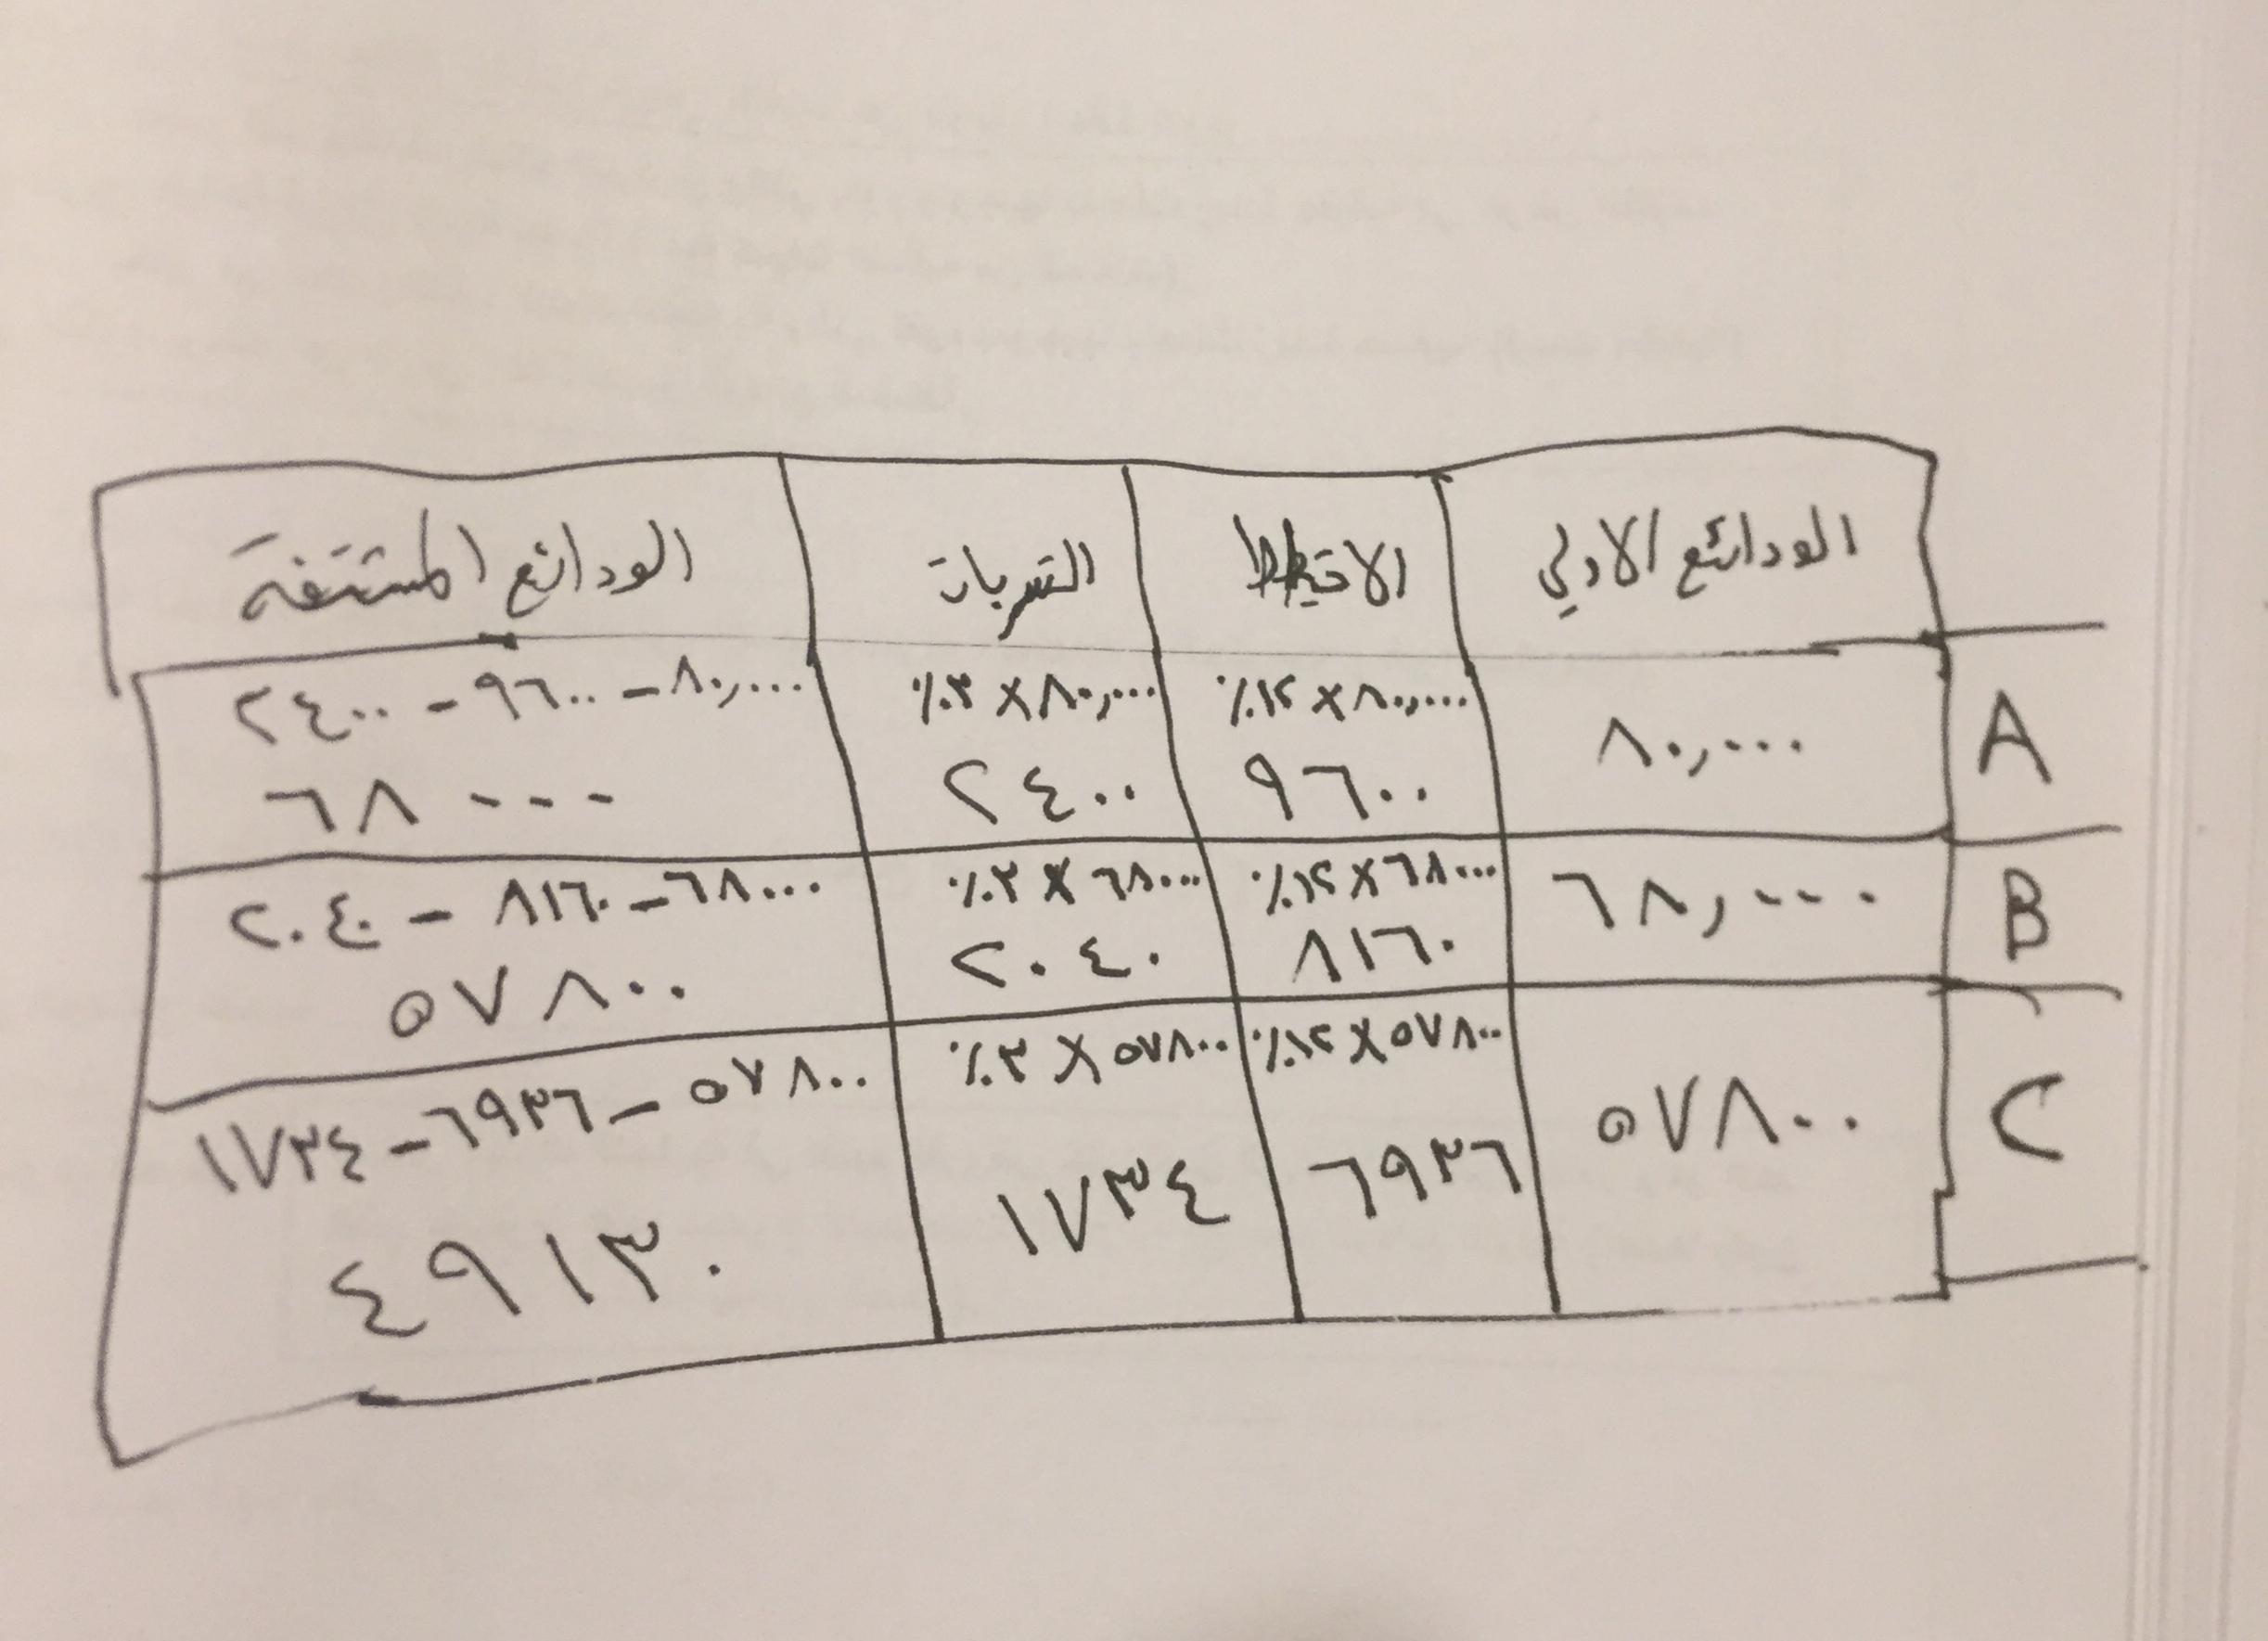 الودائع الاولي الاحتياط التسربات الودائع المشتقة
A ٨٠,٠٠٠ ٨٠,٠٠٠ × ١٢٪ ٨٠,٠٠٠ × ٣٪ ٨٠,٠٠٠ – ٩٦٠٠ – ٢٤٠٠
٩٦٠٠ ٢٤٠٠ ٦٨٠٠٠
B ٦٨,٠٠٠ ٦٨٠٠٠ × ١٢٪ ٦٨٠٠٠ × ٣٪ ٦٨٠٠٠ – ٨١٦٠ – ٢٠٤٠
٨١٦٠ ٢٠٤٠ ٥٧٨٠٠
C ٥٧٨٠٠ ٥٧٨٠٠ × ١٢٪ ٥٧٨٠٠ × ٣٪ ٥٧٨٠٠ – ٦٩٣٦ – ١٧٣٤
٦٩٣٦ ١٧٣٤ ٤٩١٣٠